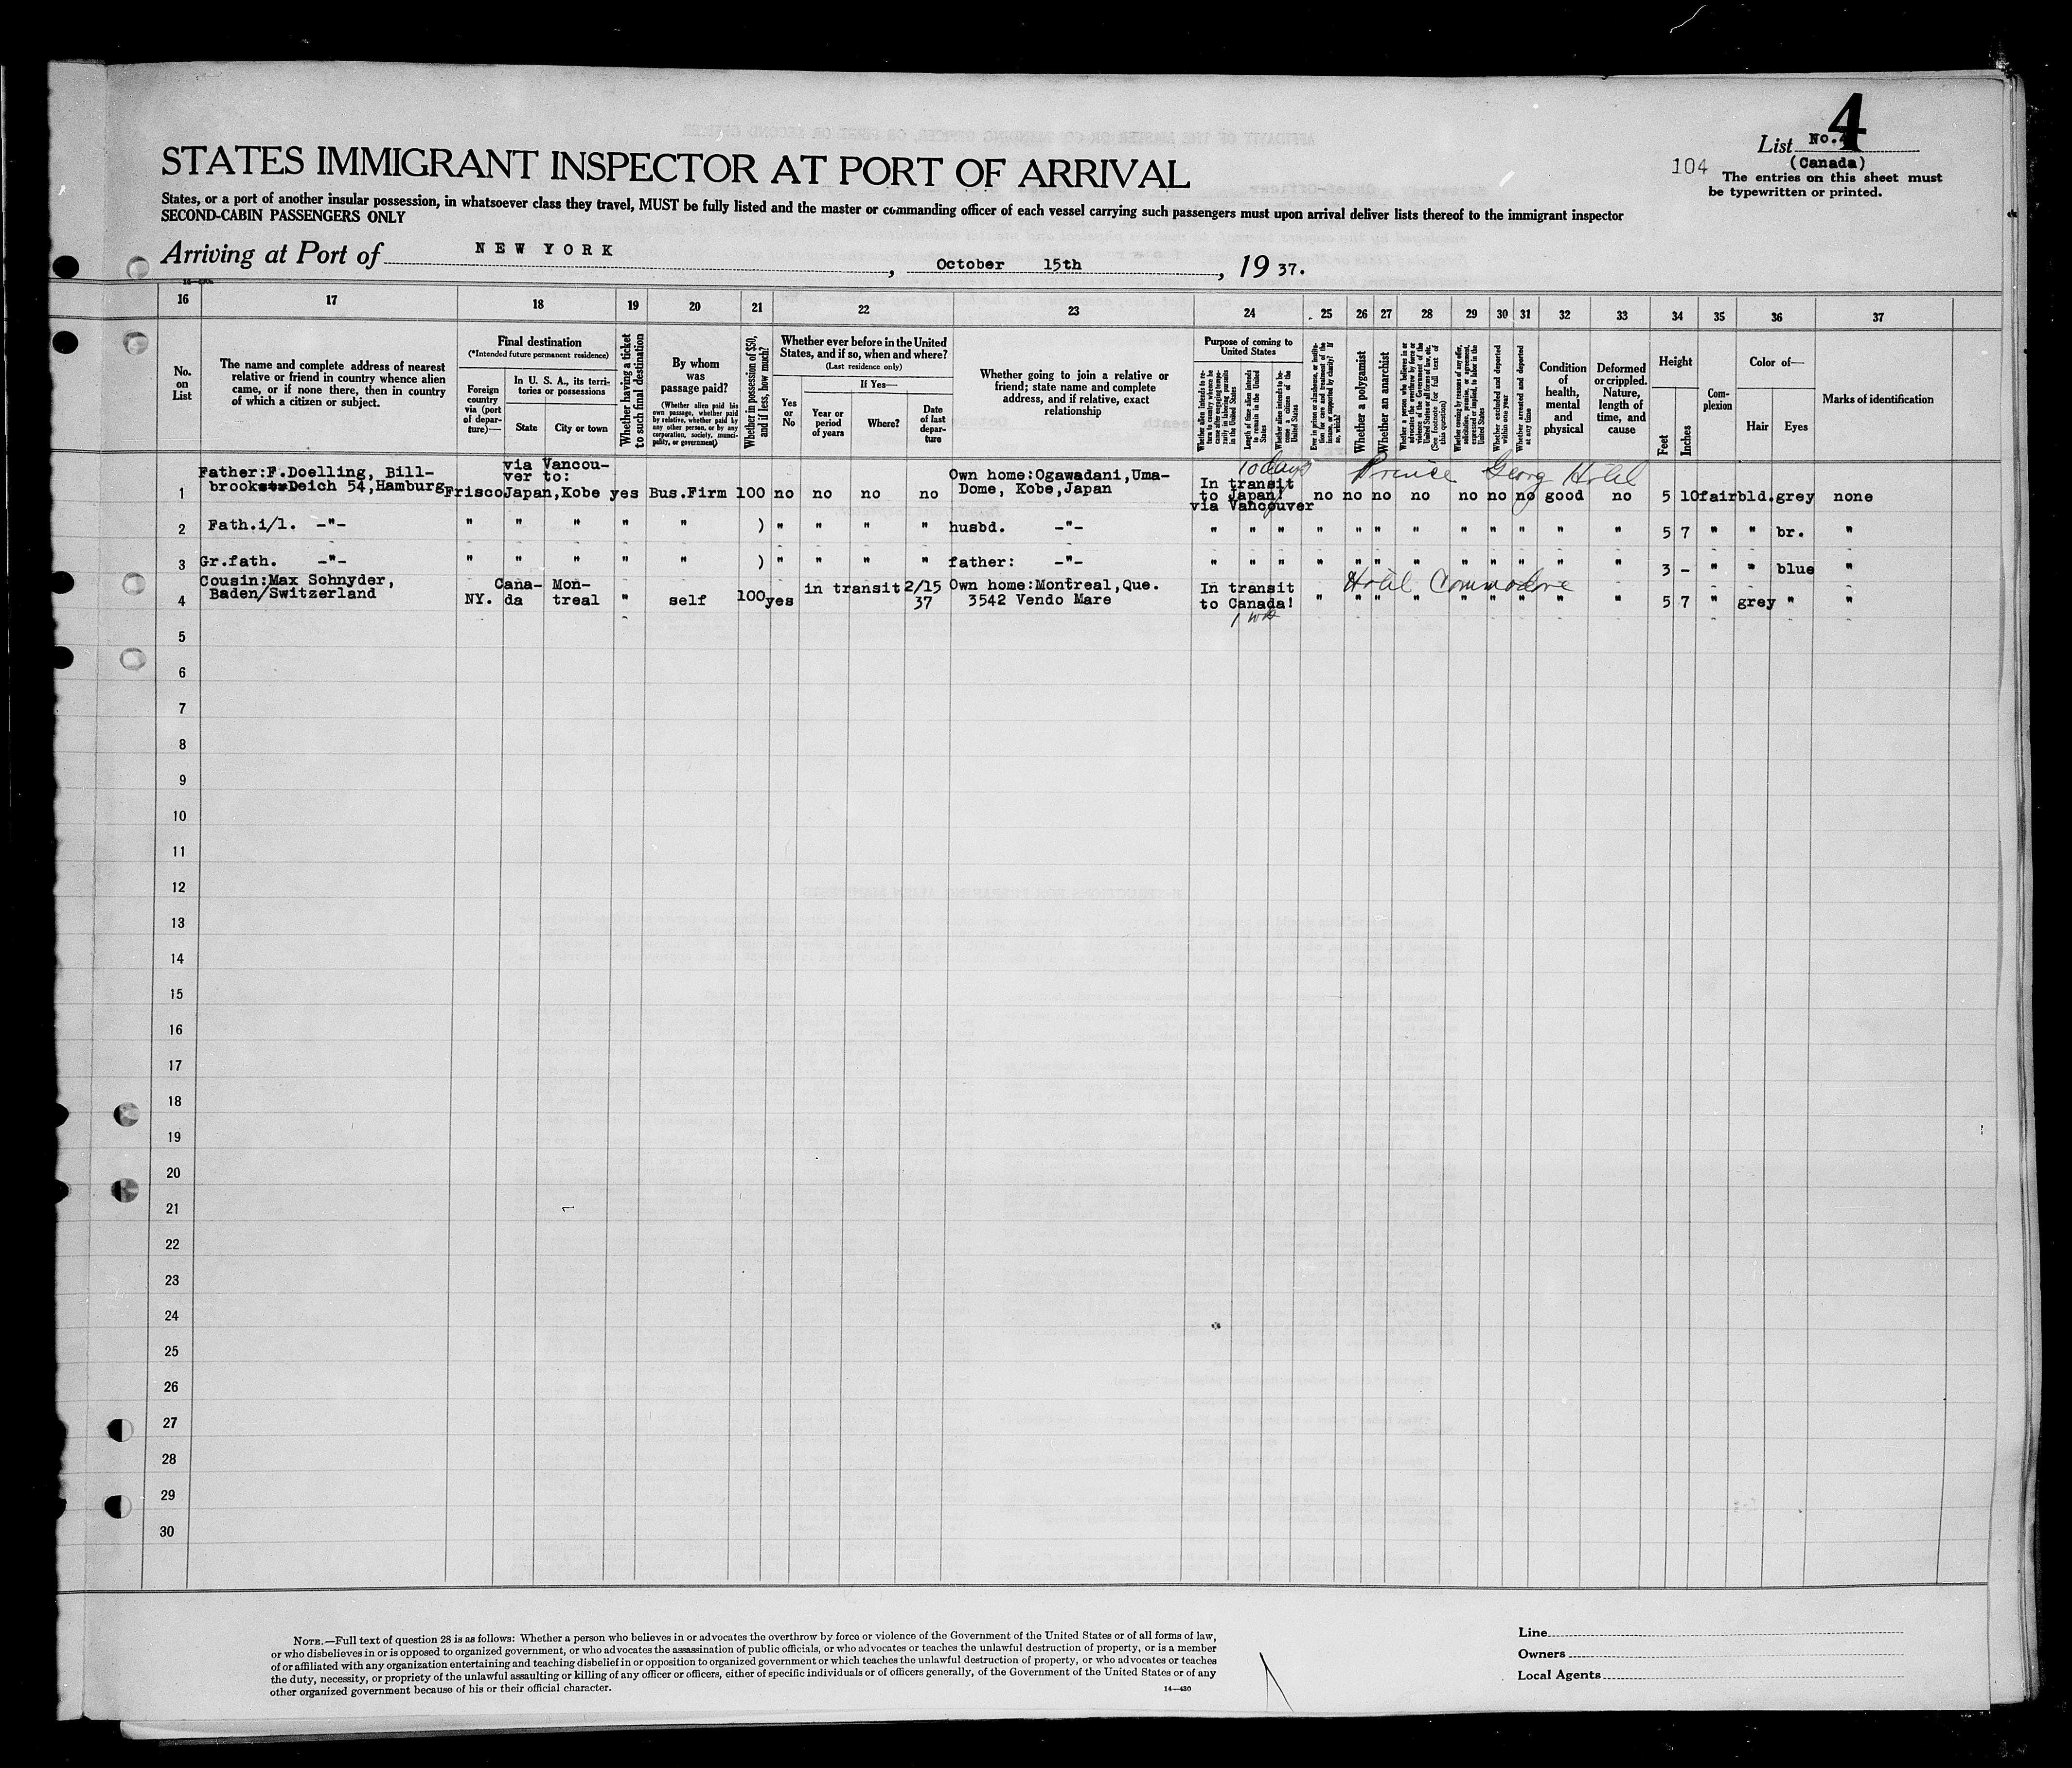 4
List No.
104
(Canada)
The entries on this sheet must
be typewritten or printed.
STATES IMMIGRANT INSPECTOR AT PORT OF ARRIVAL
States, or a port of another insular possession, in whatsoever class they travel, MUST be fully listed and the master or commanding officer of each vessel carrying such passengers must upon arrival deliver lists thereof to the immigrant inspector
SECOND-CABIN PASSENGERS ONLY
Arriving at Port of NEW YORK, October 15th, 19 37.
16 17 18 19 20 21 22 23 24 25 26 27 28 29 30 31 32 33 34 35 36 37
No.
on
List
The name and complete address of nearest
relative or friend in country whence alien
came, or if none there, then in country
of which a citizen or subject.
Final destination
(*Intended future permanent residence)
Foreign
country
via (port
of depar-
ture)—
In U. S. A., its terri-
tories or possessions
State City or town
Whether having a ticket
to such final destination
By whom
was
passage paid?
(Whether alien paid his
own passage, whether paid
by relative, whether paid by
any other person, or by any
corporation, society, munici-
pality, or government)
Whether in possession of $50,
and if less, how much?
Whether ever before in the United
States, and if so, when and where?
(Last residence only)
Yes
or
No
If Yes—
Year or
period
of years
Where?
Date
of last
depar-
ture
Whether going to join a relative or
friend; state name and complete
address, and if relative, exact
relationship
Purpose of coming to
United States
Length of time alien intends
to remain in the United
States
Whether alien intends to be-
come a citizen of the
United States
Whether a polygamist
Whether an anarchist
(See footnote for full text of
this question)
Whether excluded and deported
within one year
Whether arrested and deported
at any time
Condition
of
health,
mental
and
physical
Deformed
or crippled.
Nature,
length of
time, and
cause
Height
Feet Inches
Com-
plexion
Color of—
Hair Eyes
Marks of identification
10 days Prince Georg Hotel
Father:F.Doelling, Bill- via Vancou- Own home:Ogawadani,Uma- In transit
brook Deich 54,Hamburg ver to: Dome, Kobe,Japan to Japan!
1 Frisco Japan,Kobe yes Bus.Firm 100 no no no no via Vancouver no no no no no no no good no 5 10 fair bld. grey none
2 Fath.i/l. -"- " " " " " ) " " " " husbd. -"- " " " " " " " " " " " " 5 7 " " br. "
3 Gr.fath. -"- " " " " " ) " " " " father: -"- " " " " " " " " " " " " 3 - " " blue "
Cousin:Max Schnyder, Cana- Mon- in transit 2/15 Own home:Montreal,Que. In transit Hotel Commodore
4 Baden/Switzerland NY. da treal " self 100 yes 37 3542 Vendo Mare to Canada! " " " " " " " " " 5 7 " grey " "
5
6
7
8
9
10
11
12
13
14
15
16
17
18
19
20
21
22
23
24
25
26
27
28
29
30
NOTE.—Full text of question 28 is as follows: Whether a person who believes in or advocates the overthrow by force or violence of the Government of the United States or of all forms of law,
or who disbelieves in or is opposed to organized government, or who advocates the assassination of public officials, or who advocates or teaches the unlawful destruction of property, or is a member
of or affiliated with any organization entertaining and teaching disbelief in or opposition to organized government or which teaches the unlawful destruction of property, or who advocates or teaches
the duty, necessity, or propriety of the unlawful assaulting or killing of any officer or officers, either of specific individuals or of officers generally, of the Government of the United States or of any
other organized government because of his or their official character.
14—430
Line
Owners
Local Agents